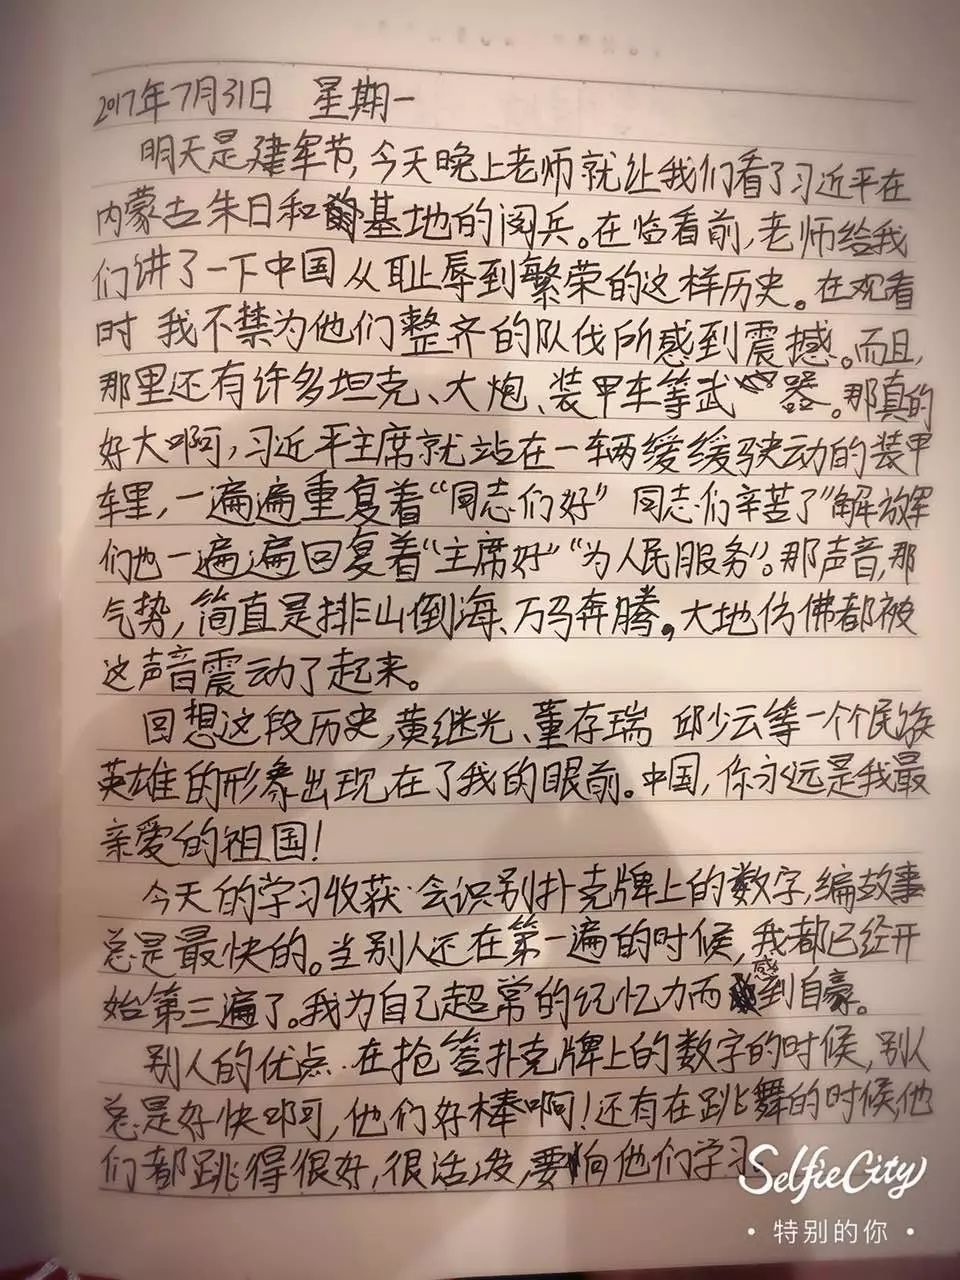 2017年7月31日 星期一
明天是建军节,今天晚上老师就让我们看了习近平在
内蒙古朱日和基地的阅兵。在临看前,老师给我
们讲了一下中国从耻辱到繁荣的这样历史。在观看
时 我不禁为他们整齐的队伐所感到震撼。而且,
那里还有许多坦克、大炮、装甲车等武器。那真的
好大啊,习近平主席就站在一辆缓缓驶动的装甲
车里,一遍遍重复着“同志们好” 同志们辛苦了”解放军
们也一遍遍回复着“主席好”“为人民服务”。那声音,那
气势,简直是排山倒海、万马奔腾。大地仿佛都被
这声音震动了起来。
回想这段历史,黄继光、董存瑞 邱少云等一个个民族
英雄的形象出现在了我的眼前。中国,你永远是我最
亲爱的祖国!
今天的学习收获·会识别扑克牌上的数字,编故事
总是最快的。当别人还在第一遍的时候,我都已经开
始第三遍了。我为自己超常的记忆力而感到自豪。
别人的优点·在抢答扑克牌上的数字的时候,别人
总是好快啊,他们好棒啊!还有在跳舞的时候,他
们都跳得很好,很活泼,要向他们学习。
SelfieCity
·特别的你·